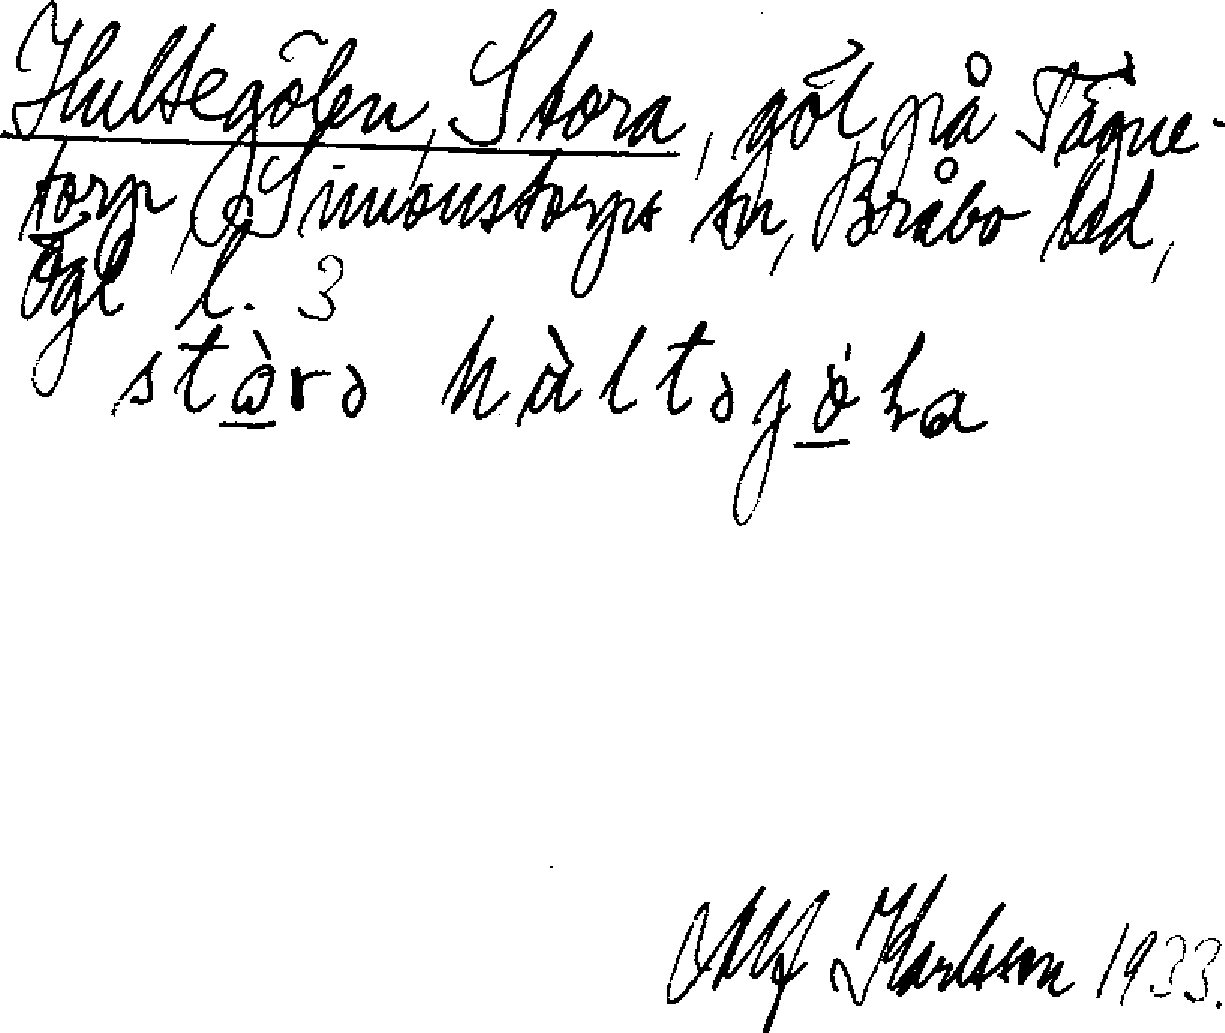 Hultegölen, Stora, göl på Tågne-
torp, Simonstorps sn, Bråbo hd,
Ögl l. 3
Alf Karlsson 1933.